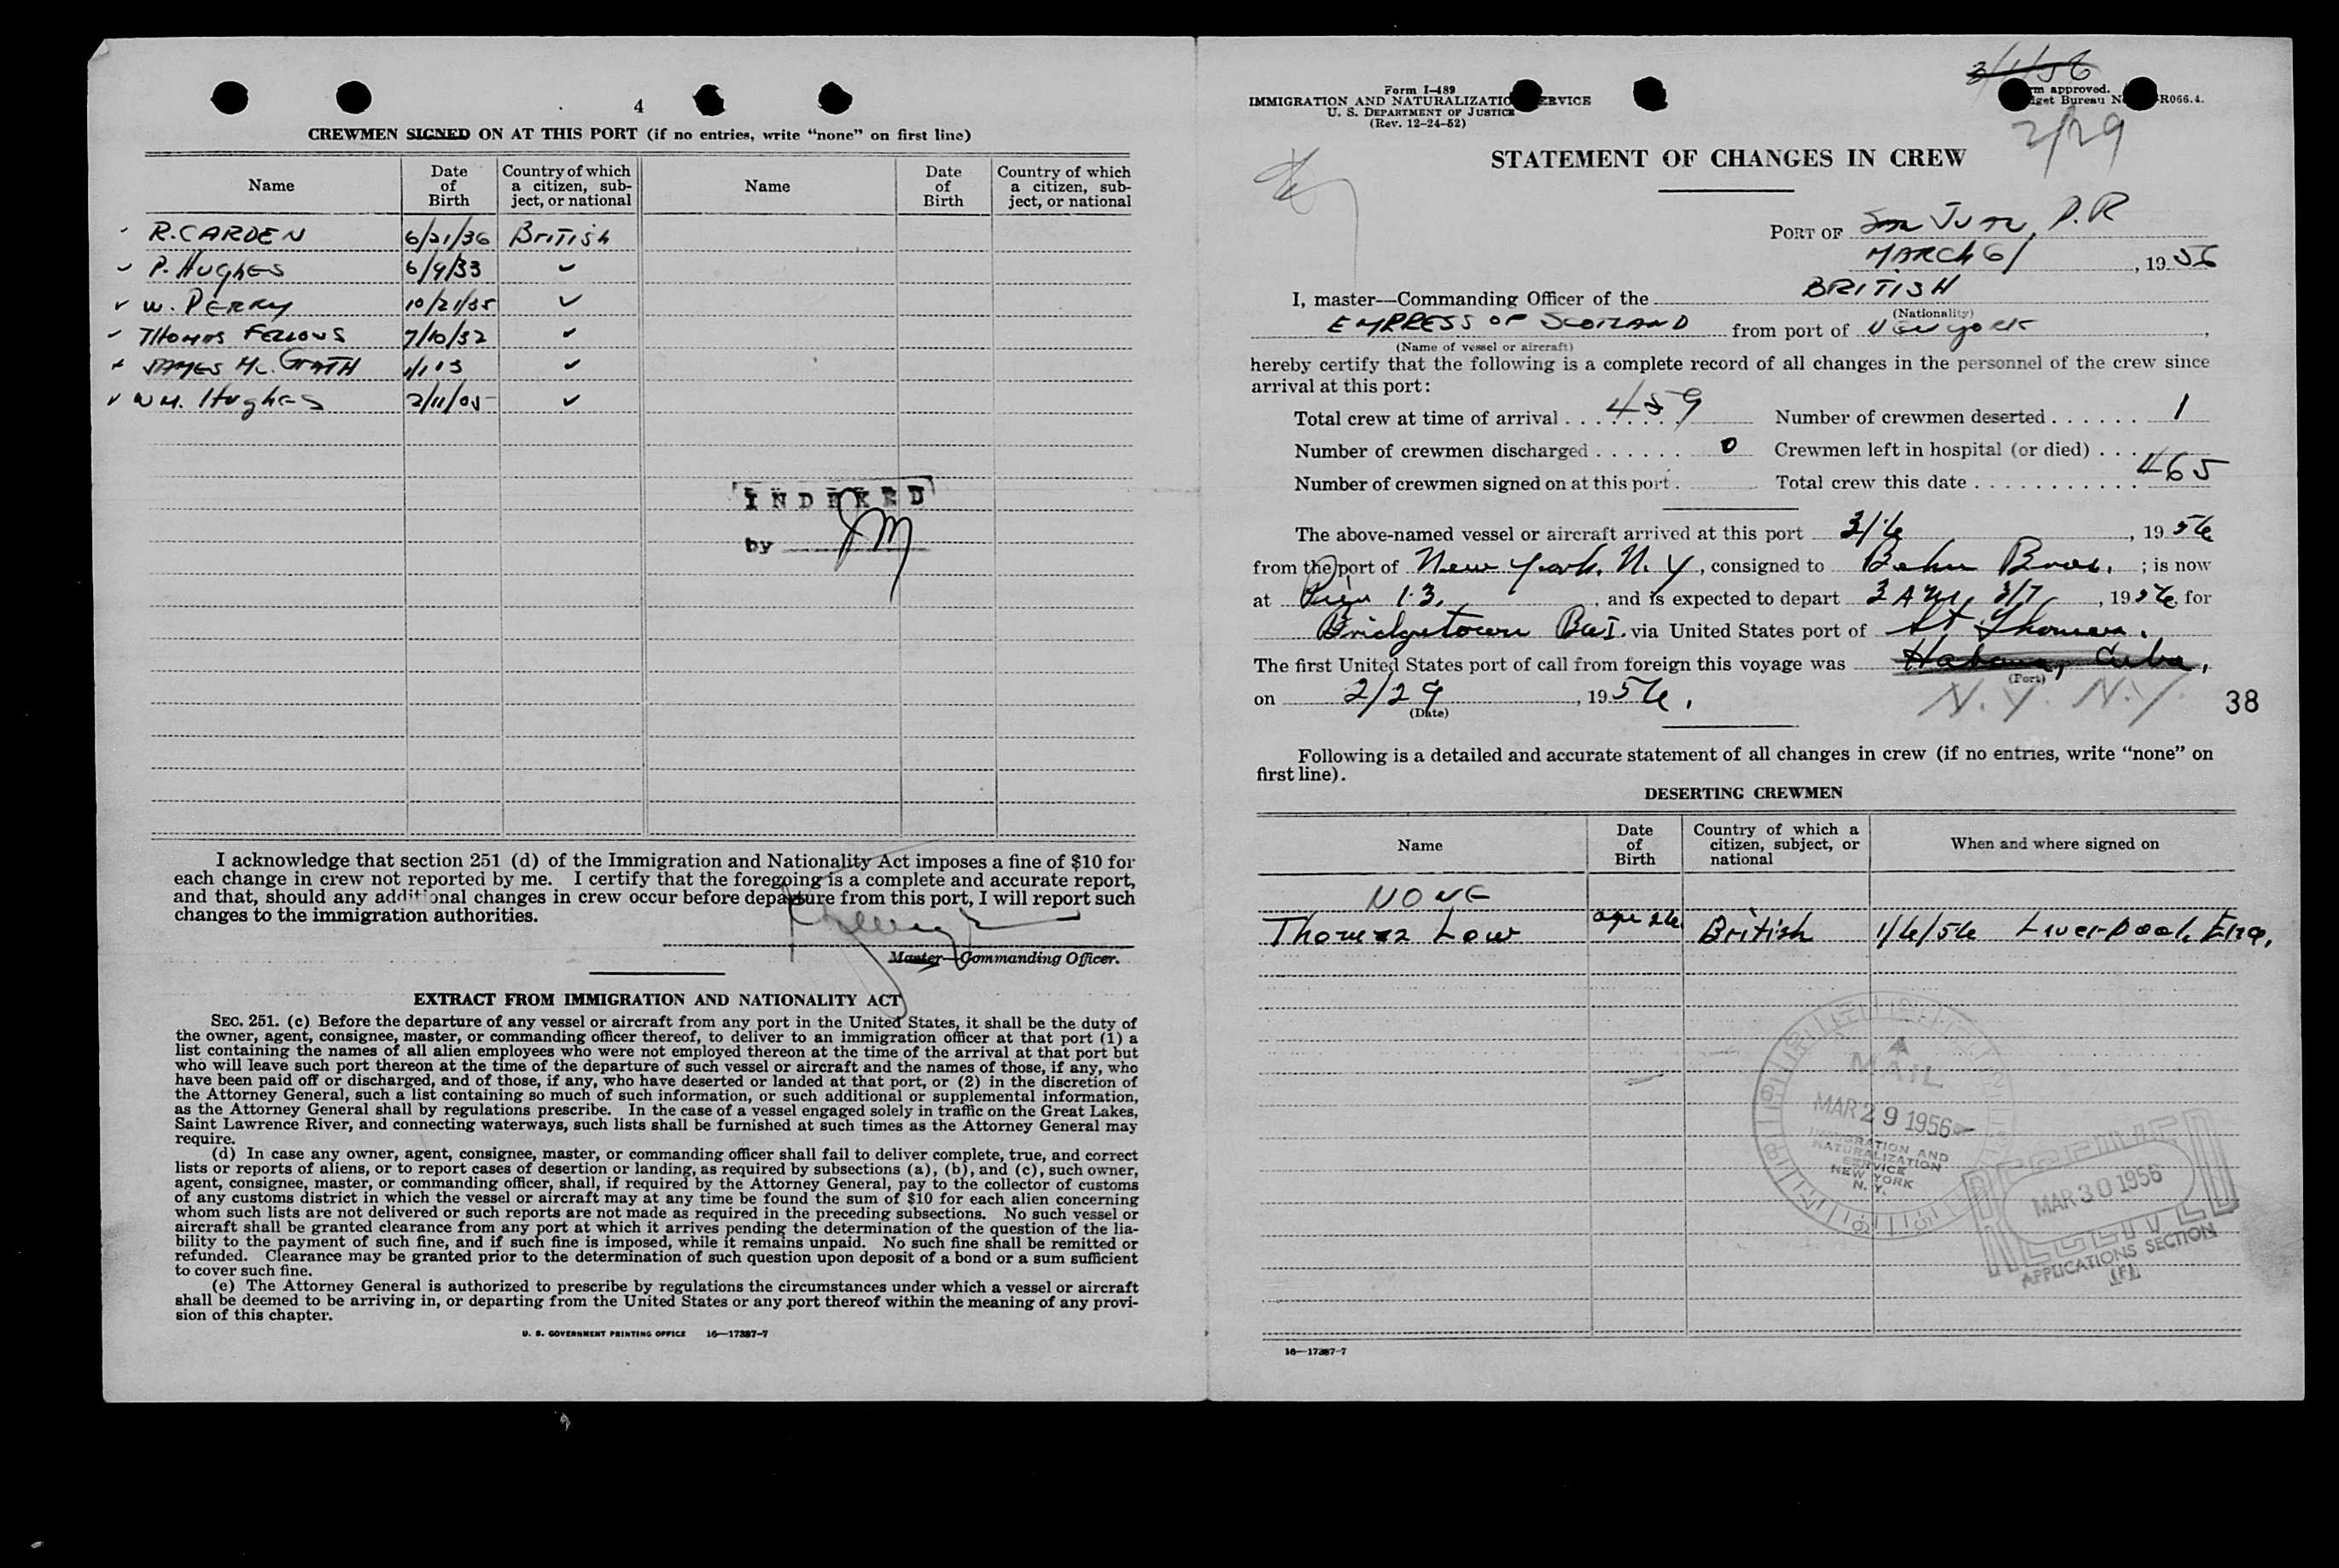 4
CREWMEN SIGNED ON AT THIS PORT (if no entries, write "none" on first line)
Name
Date of Birth
Country of which a citizen, subject, or national
Name
Date of Birth
Country of which a citizen, subject, or national
R. CARDEN 6/21/36 British
P. HUghES 6/9/33 ✓
W. PERRY 10/21/35 ✓
THOMAS FELLOWS 7/10/32 ✓
JAMES Mc. GRATH 1/1 03 ✓
WM. HughES 2/11/05 ✓
INDEXED
by JM
I acknowledge that section 251 (d) of the Immigration and Nationality Act imposes a fine of $10 for
each change in crew not reported by me. I certify that the foregoing is a complete and accurate report,
and that, should any additional changes in crew occur before departure from this port, I will report such
changes to the immigration authorities.
Master—Commanding Officer.
EXTRACT FROM IMMIGRATION AND NATIONALITY ACT
SEC. 251. (c) Before the departure of any vessel or aircraft from any port in the United States, it shall be the duty of
the owner, agent, consignee, master, or commanding officer thereof, to deliver to an immigration officer at that port (1) a
list containing the names of all alien employees who were not employed thereon at the time of the arrival at that port but
who will leave such port thereon at the time of the departure of such vessel or aircraft and the names of those, if any, who
have been paid off or discharged, and of those, if any, who have deserted or landed at that port, or (2) in the discretion of
the Attorney General, such a list containing so much of such information, or such additional or supplemental information,
as the Attorney General shall by regulations prescribe. In the case of a vessel engaged solely in traffic on the Great Lakes,
Saint Lawrence River, and connecting waterways, such lists shall be furnished at such times as the Attorney General may
require.
(d) In case any owner, agent, consignee, master, or commanding officer shall fail to deliver complete, true, and correct
lists or reports of aliens, or to report cases of desertion or landing, as required by subsections (a), (b), and (c), such owner,
agent, consignee, master, or commanding officer, shall, if required by the Attorney General, pay to the collector of customs
of any customs district in which the vessel or aircraft may at any time be found the sum of $10 for each alien concerning
whom such lists are not delivered or such reports are not made as required in the preceding subsections. No such vessel or
aircraft shall be granted clearance from any port at which it arrives pending the determination of the question of the lia-
bility to the payment of such fine, and if such fine is imposed, while it remains unpaid. No such fine shall be remitted or
refunded. Clearance may be granted prior to the determination of such question upon deposit of a bond or a sum sufficient
to cover such fine.
(e) The Attorney General is authorized to prescribe by regulations the circumstances under which a vessel or aircraft
shall be deemed to be arriving in, or departing from the United States or any port thereof within the meaning of any provi-
sion of this chapter.
U. S. GOVERNMENT PRINTING OFFICE 16—17387-7
3/1/56
Form I-489
IMMIGRATION AND NATURALIZATION SERVICE
U. S. DEPARTMENT OF JUSTICE
(Rev. 12-24-52)
approved.
Bureau R066.4.
2/29
STATEMENT OF CHANGES IN CREW
PORT OF San Juan, P.R
MARCh 6/, 19 56
I, master—Commanding Officer of the BRITISH
(Nationality)
EMPRESS OF SCOTLAND from port of New york,
(Name of vessel or aircraft)
hereby certify that the following is a complete record of all changes in the personnel of the crew since
arrival at this port:
Total crew at time of arrival 459 Number of crewmen deserted 1
Number of crewmen discharged 0 Crewmen left in hospital (or died)
Number of crewmen signed on at this port Total crew this date 465
The above-named vessel or aircraft arrived at this port 3/6, 19 56
from the port of New York, N. Y, consigned to Behn Bros. ; is now
at Pier 13, and is expected to depart 3 AM, 3/7, 19 56 for
Bridgetown BWI. via United States port of St. Thomas.
The first United States port of call from foreign this voyage was Habana, Cuba,
(Port)
on 2/29, 19 56. N.Y. N.Y.
(Date)
38
Following is a detailed and accurate statement of all changes in crew (if no entries, write "none" on
first line).
DESERTING CREWMEN
Name
Date of Birth
Country of which a citizen, subject, or national
When and where signed on
NONE
Thomas Low age 26 British 1/6/56 Liverpool, Eng.
MAIL
MAR 29 1956
IMMIGRATION AND
NATURALIZATION
SERVICE
NEW YORK
N. Y.
RECEIVED
MAR 30 1956
RECEIVED
APPLICATIONS SECTION
16—17387-7